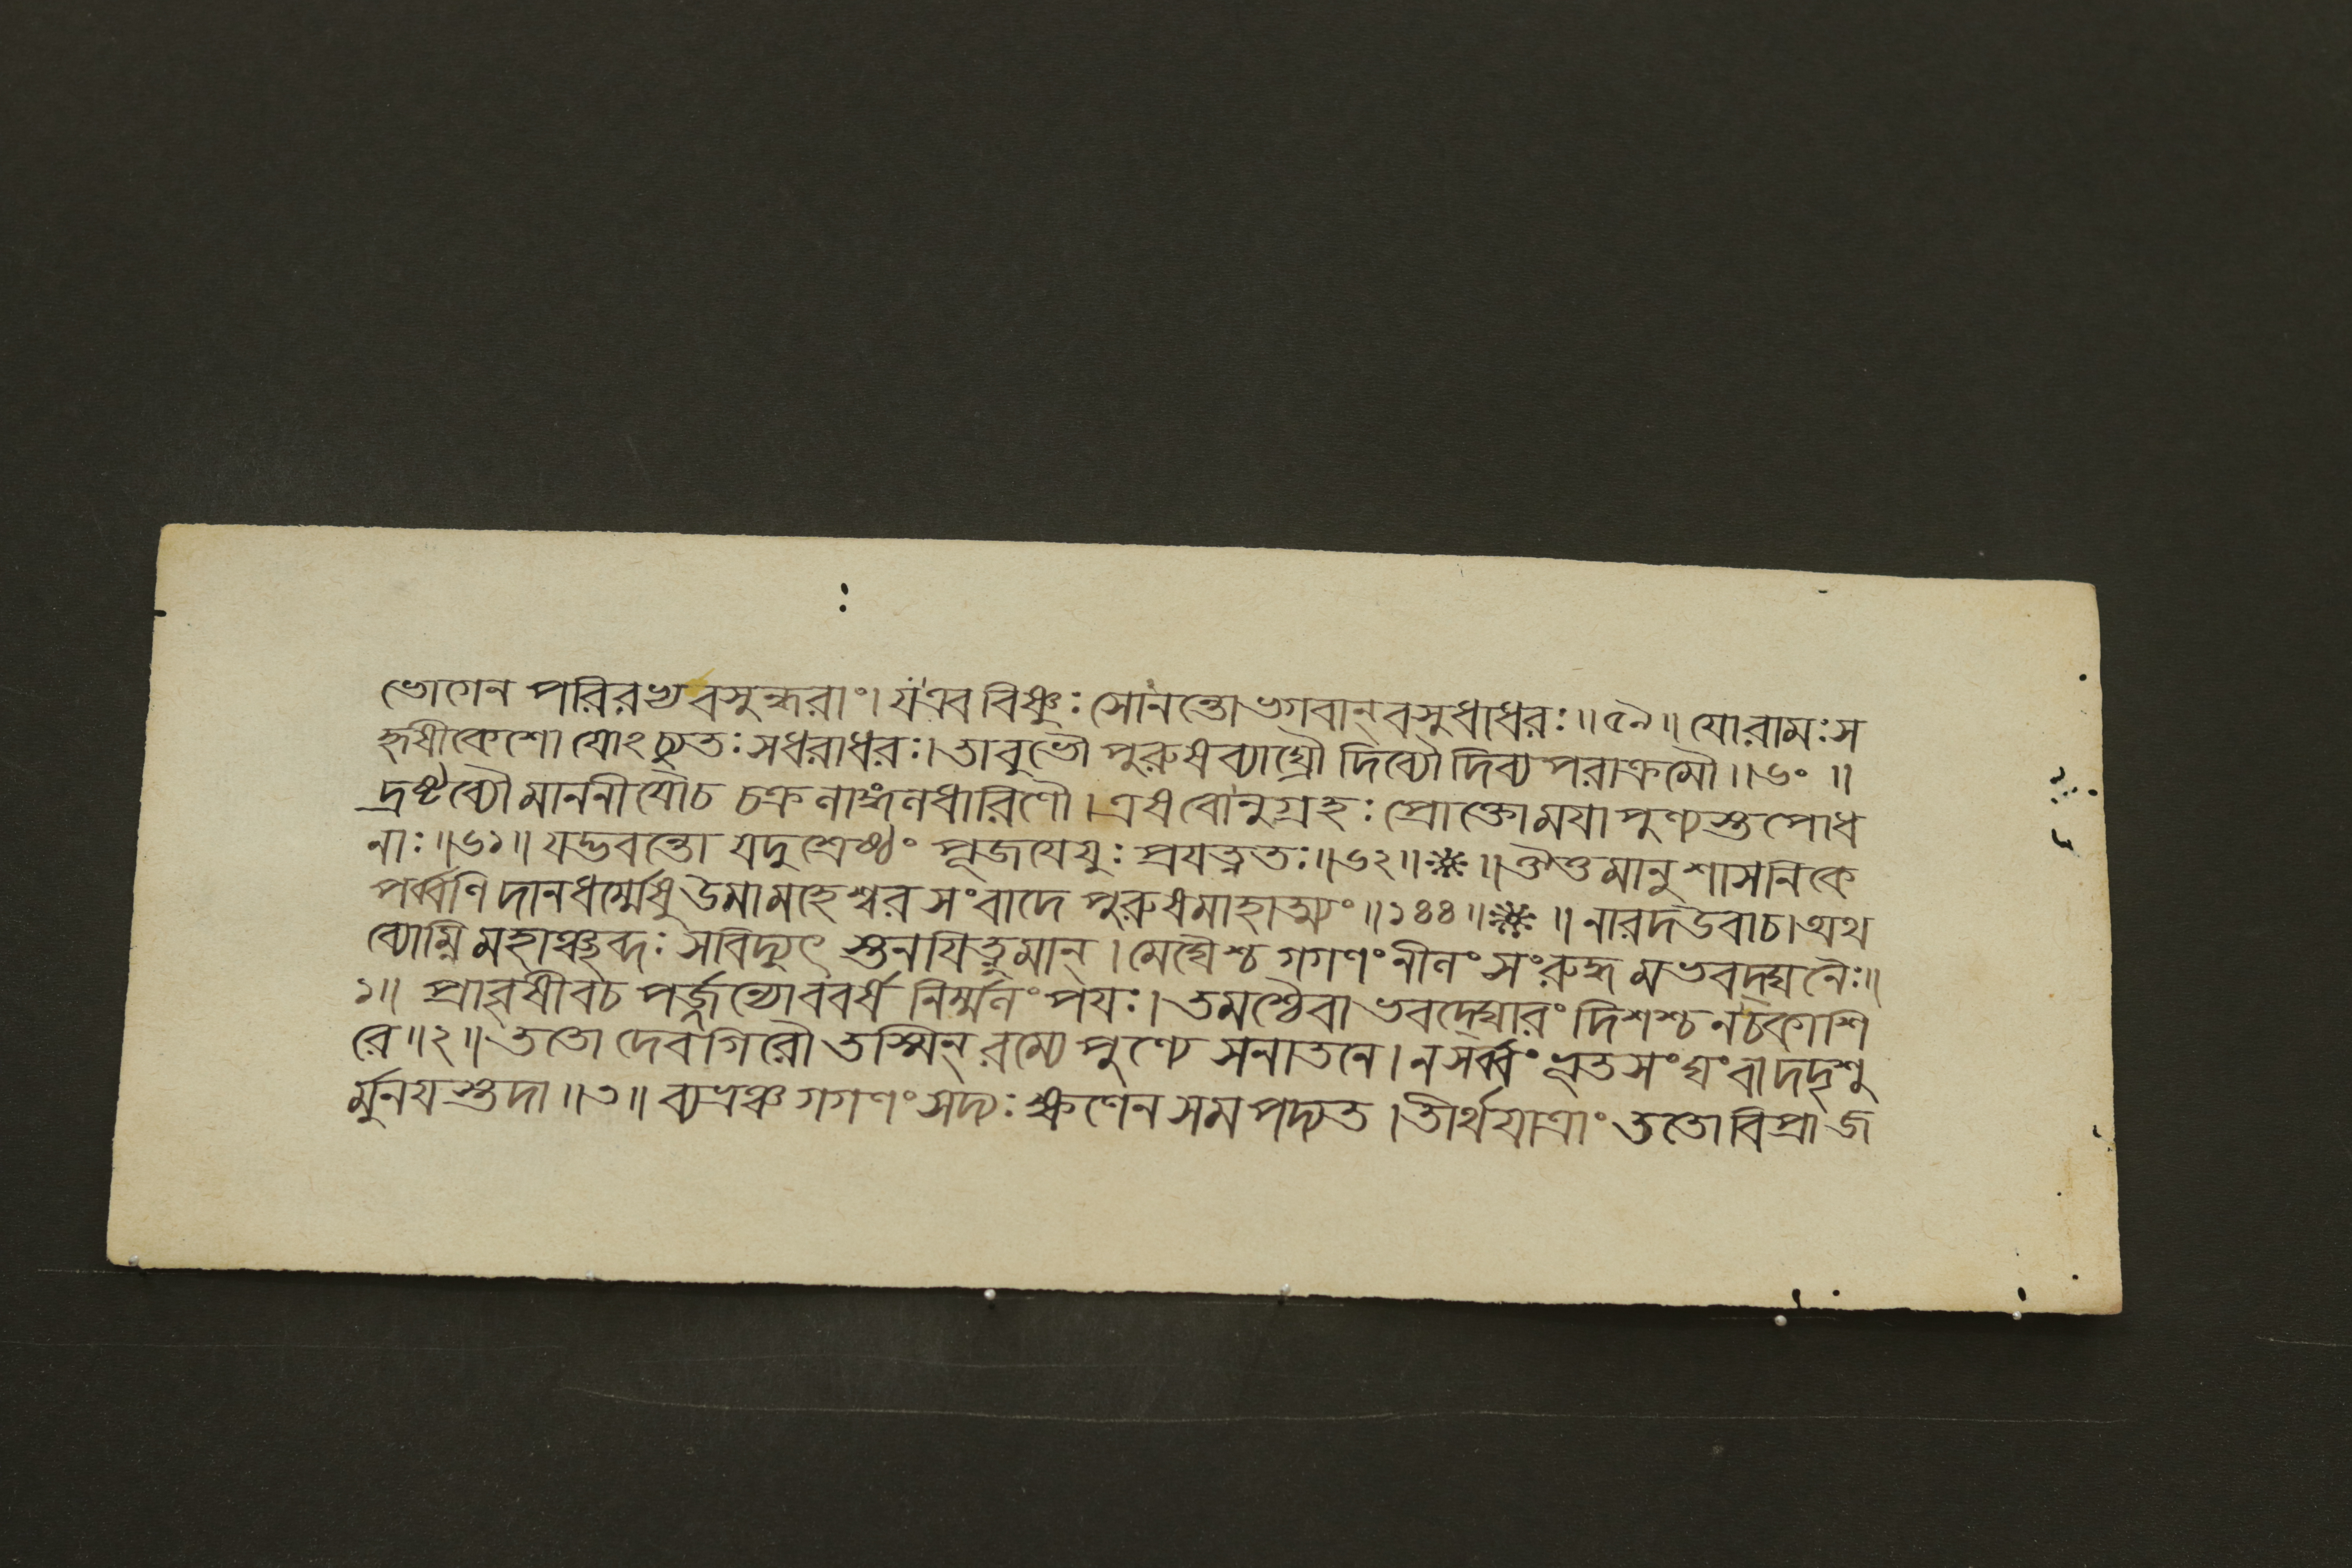 ভোগেন পরিরভ্য বসুন্ধরাং। য এব বিষ্ণুঃ সোনন্তো ভগবান্ বসুধাধরঃ॥৫৯॥ যো রামঃ স
হৃষীকেশো যোঽচ্যুতঃ সধরাধরঃ। তাবুভৌ পুরুষব্যাঘ্রৌ দিব্যৌ দিব্যপরাক্রমৌ॥৬০॥
দ্রষ্টব্যৌ মাননীযৌ চ চক্রলাঙ্গলধারিণৌ। এষ বোনুগ্রহঃ প্রোক্তো মযা পুণ্যস্তপোধ
নাঃ॥৬১॥ যদ্ভবন্তো যদুশ্রেষ্ঠং পূজযেযুঃ প্রযত্নতঃ॥৬২॥ ॥ মানুশাসনিকে
পর্ব্বণি দানধর্ম্মেষু উমামহেশ্বরসংবাদে পুরুষমাহাত্ম্যং॥১৪৪॥ ॥ নারদ উবাচ। অথ
ব্যোম্নি মহাঞ্ছব্দঃ সবিদ্যুৎ স্তনযিত্নুমান্। মেঘৈশ্চ গগণং নীলং সংরুদ্ধমভবদ্ঘনৈঃ॥
১॥ প্রাবৃষীব চ পর্জ্জন্যো ববর্ষ নির্ম্মলং পযঃ। তমশ্চৈবাভবদ্ঘোরং দিশশ্চ ন চকাশি
রে॥২॥ ততো দেবগিরৌ তস্মিন্ রম্যে পুণ্যে সনাতনে। ন সর্ব্বং ভূতসংঘং বা দদৃশু
র্মুনযস্তদা॥৩॥ ব্যভ্রঞ্চ গগণং সদ্যঃ ক্ষণেন সমপদ্যত। তীর্থযাত্রাং ততো বিপ্রা জ